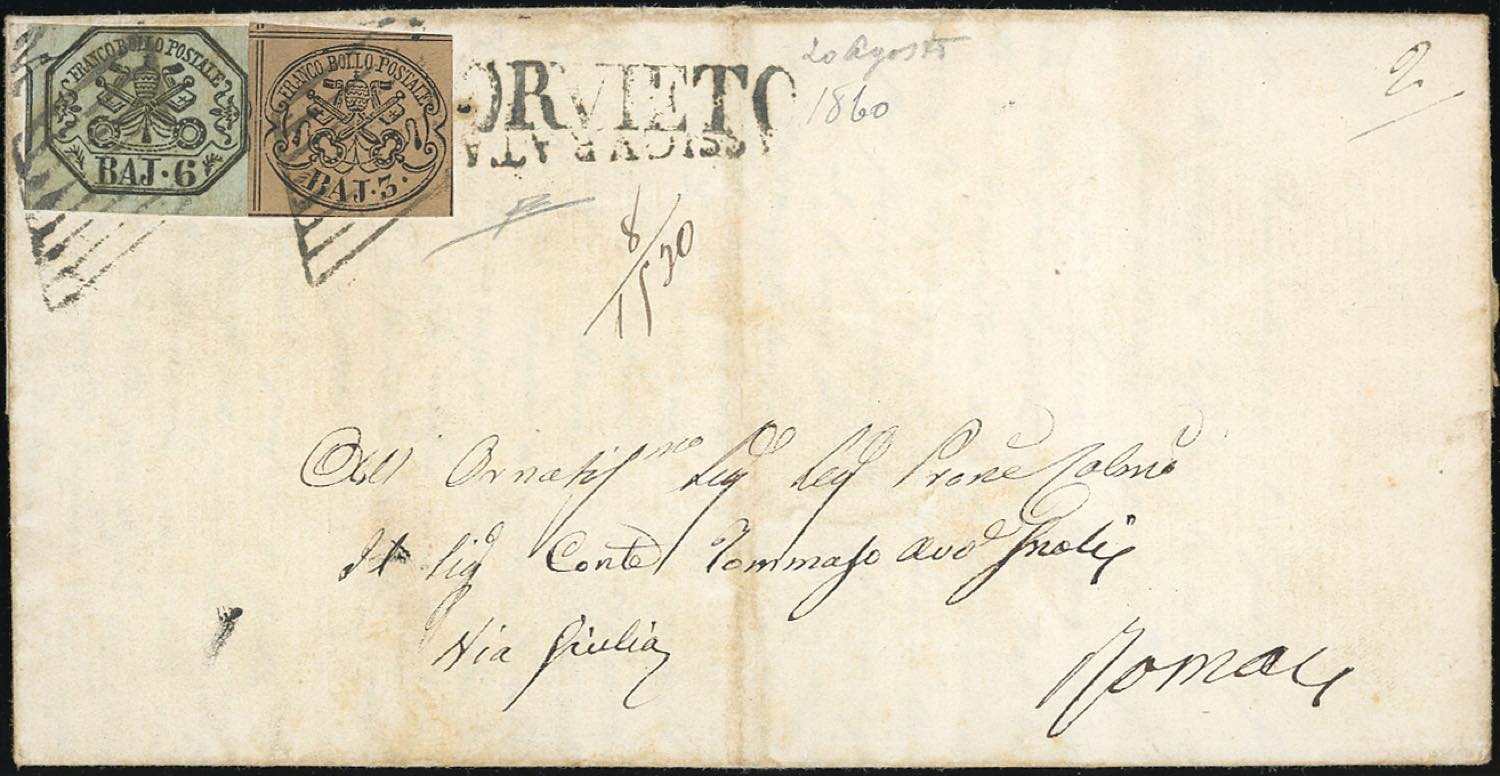 FRANCO BOLLO POSTALE
BAJ·6
FRANCO BOLLO POSTALE
BAJ·3·
ORVIETO
ASSICVRATA
20 Agosto
1860
2
8/1520
All' Ornatissmo Sig Sig Prone Colmo
Il Sig Conte Tommaso Avvo Gnoli
Via Giulia
Roma